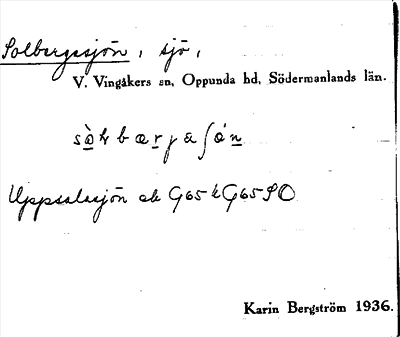 Solbergasjön, sjö,
V. Vingåkers sn, Oppunda hd, Södermanlands län.
Uppsalasjön ek G65 k G65 SO
Karin Bergström 1936.